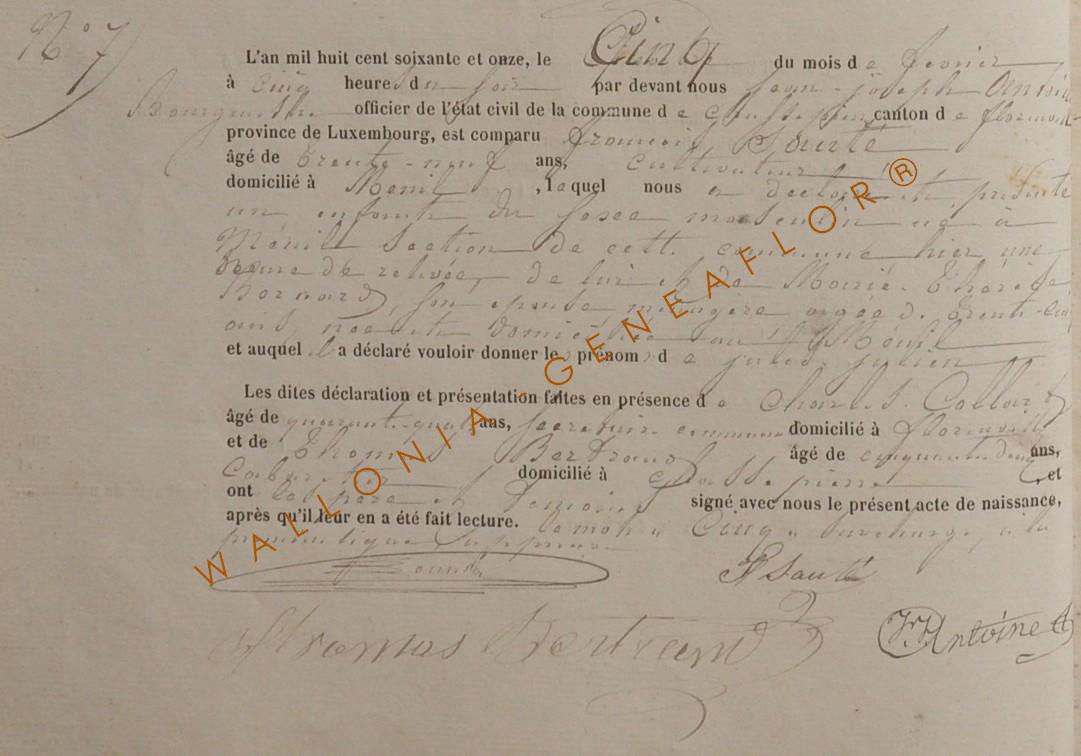 N° 7
L'an mil huit cent soixante et onze, le Cinq du mois de fevrier
à cinq heures du soir par devant nous Jean-joseph Antoine
Bourgmestre officier de l'état civil de la commune de Chassepierre canton de florenville
province de Luxembourg, est comparu françois Sauté
âgé de trente-neuf ans, cultivateur
domicilié à Ménil, laquel nous a déclaré et présenté
un enfant du sexe masculin né à
Ménil section de cette commune hier une
heure de relevée, de lui et de Marie-Thérèse
Bernard, son épouse, ménagère agée de trente-cinq
ans, née et domiciliée au Ménil
et auquel il a déclaré vouloir donner les prénoms de jules julien
Les dites déclaration et présentation faites en présence de Charles Collard
âgé de quarante-quatre ans, secrétaire communal domicilié à florenville
et de Thomas Bertrand âgé de cinquante deux ans,
Cabaretier domicilié à Chassepierre, et
ont le père et témoins signé avec nous le présent acte de naissance,
après qu'il leur en a été fait lecture. le mot « Cinq » surchargé, à la
première ligne approuvé
F Sauté
Thomas Bertrand
JJ Antoine
WALLONIA-GENEAFLOR®